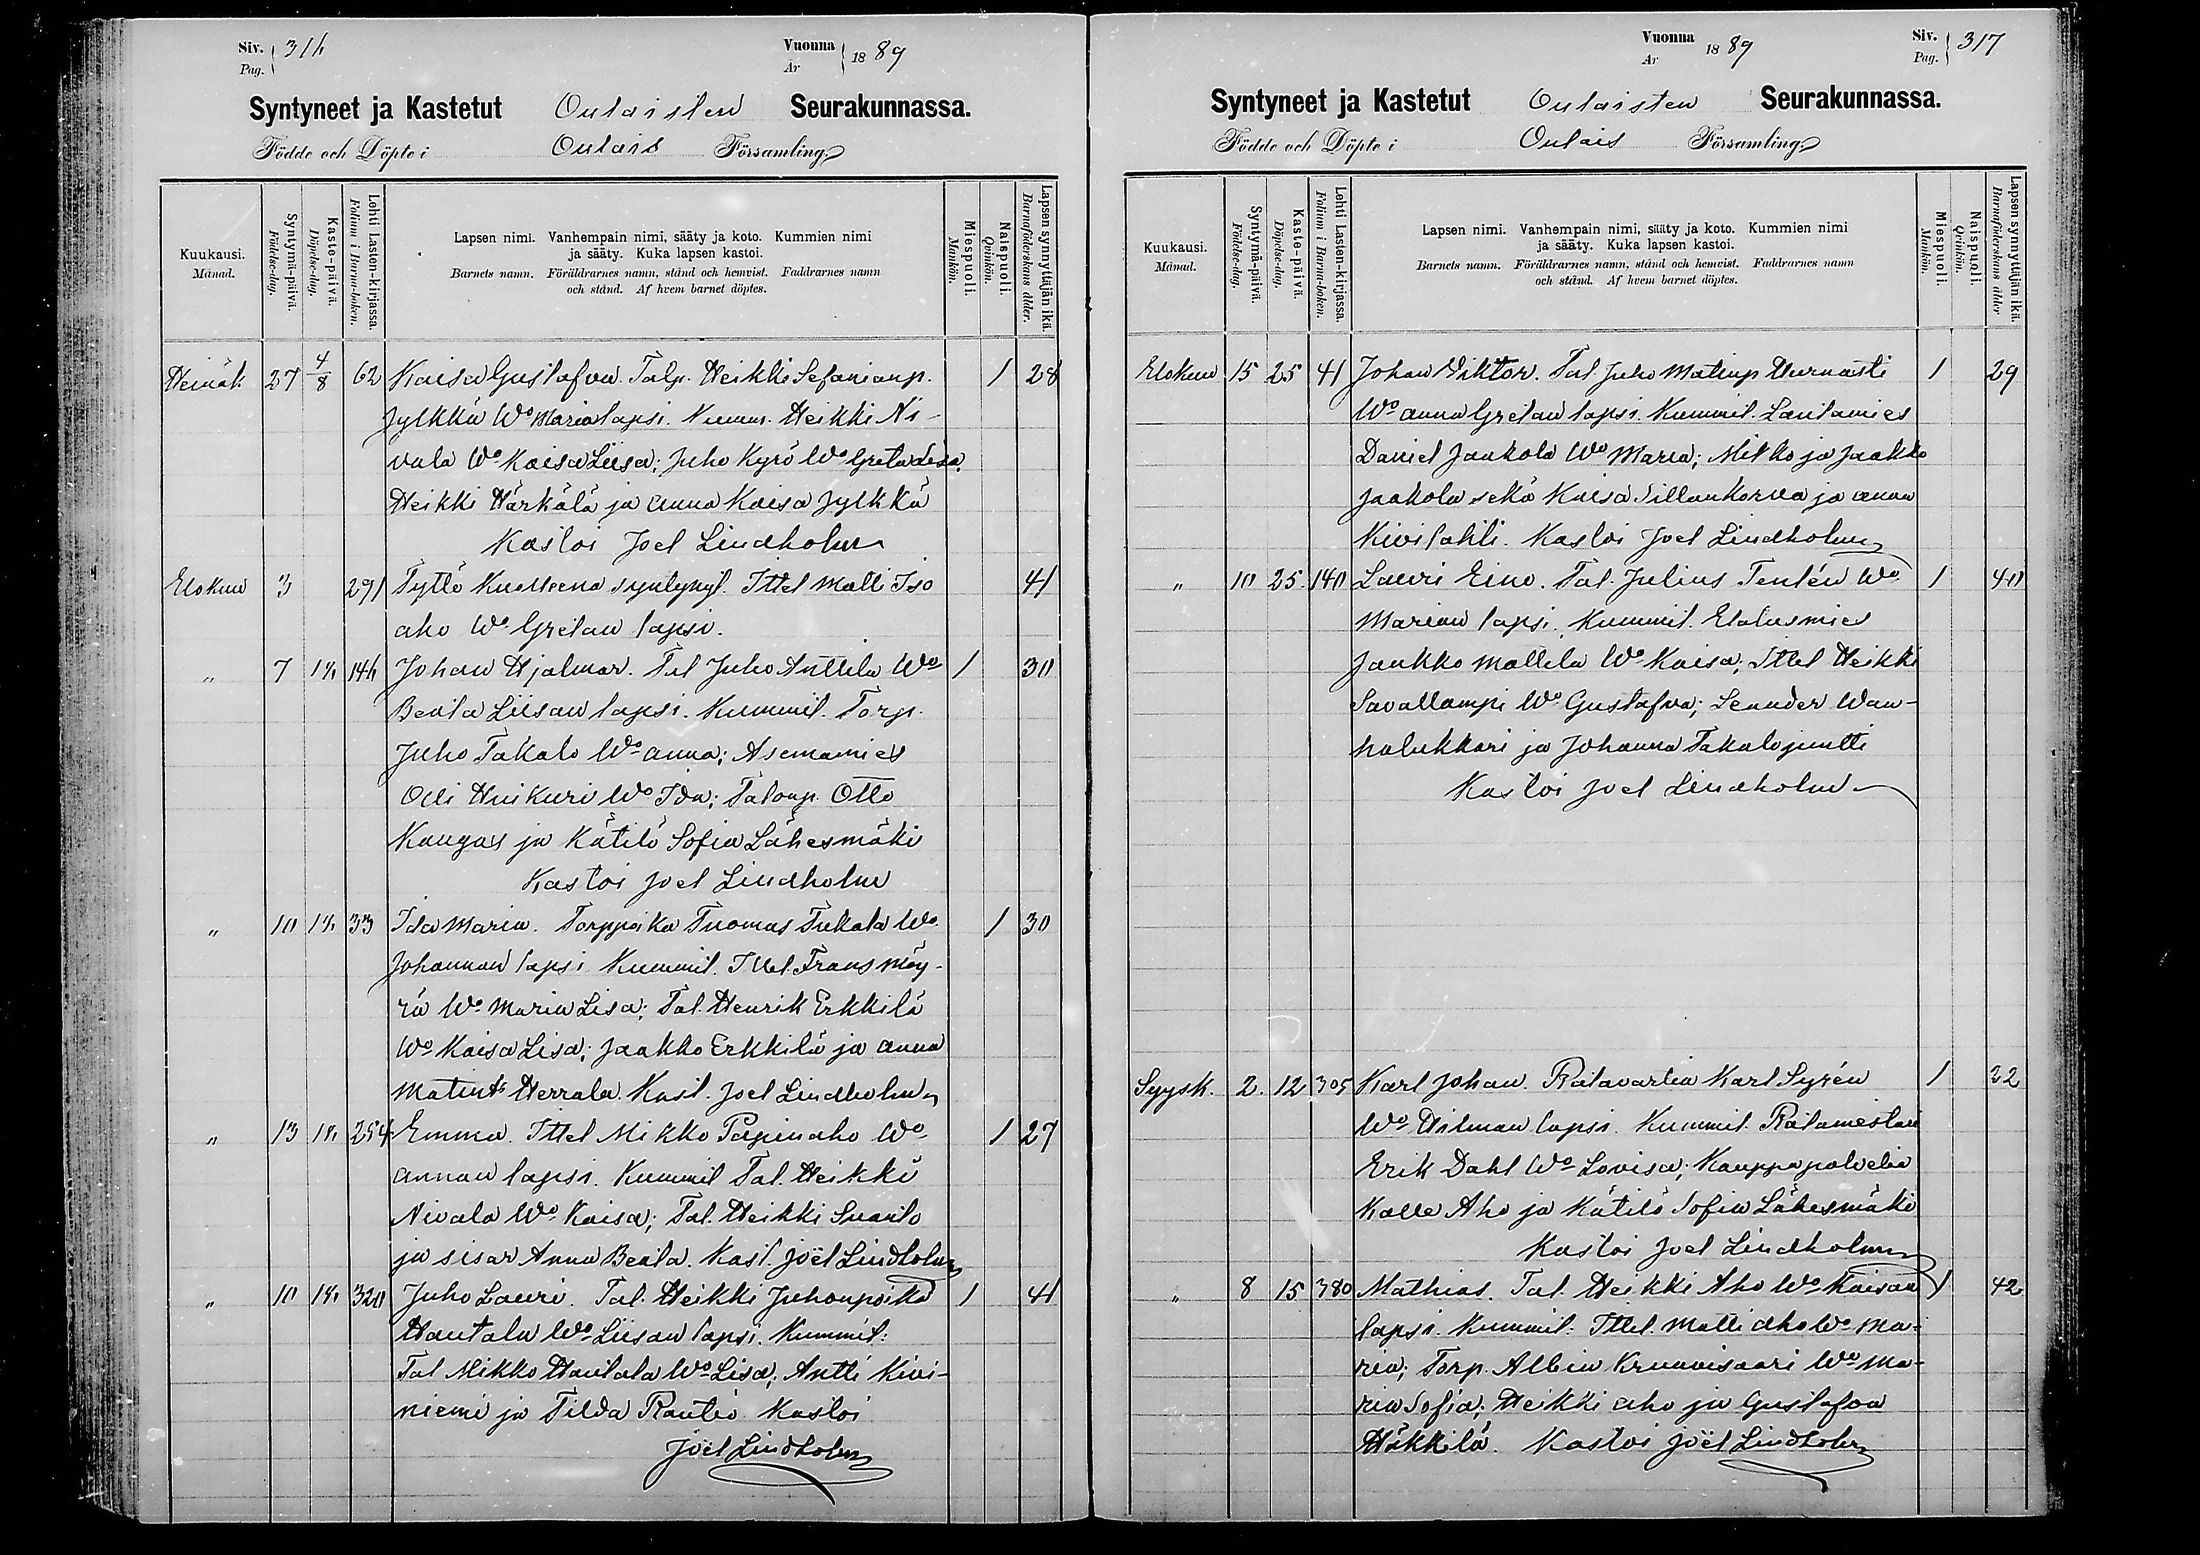 Siv. 316
Pag.
Vuonna 1889
År
Syntyneet ja Kastetut Oulaisten Seurakunnassa.
Födde och Döpte i Oulais Församling
Kuukausi. Månad.
Syntymä-päivä. Födelse-dag.
Kaste-päivä. Döpelse-dag.
Lehti Lasten-kirjassa. Folium i Barna-boken.
Lapsen nimi. Vanhempain nimi, sääty ja koto. Kummien nimi
ja sääty. Kuka lapsen kastoi.
Barnets namn. Föräldrarnes namn, stånd och hemvist. Faddrarnes namn
och stånd. Af hvem barnet döptes.
Miespuoli. Mankön.
Naispuoli. Qvinkön.
Lapsen synnyttäjän ikä. Barnaföderskans ålder.
Heinäk 27 4/8 62 Kaisa Gustafva. Talp. Heikki Sefanianp. 1 28
Jylkkä Wo Marian lapsi. Kumm. Heikki Ni-
vala Wo Kaisa Liisa; Juho Kyrö Wo Greta Lisa.
Heikki Härkälä ja Anna Kaisa Jylkkä
Kastoi Joel Lindholm
Elokuu 3 291 Tyttö kuolleena syntynyt. Ittel Matti Iso 41
aho Wo Gretan lapsi.
" 7 18 146 Johan Hjalmar. Tal Juho Anttila Wo 1 30
Beata Liisan lapsi. Kummit. Torp.
Juho Takalo Wo Anna; Asemamies
Olli Huikuri Wo Ida; Talonp. Otto
Kangas ja Kätilö Sofia Lähesmäki
Kastoi Joel Lindholm
" 10 18 33 Ida Maria. Torppoika Tuomas Takala Wo 1 30
Johannan lapsi. Kummit. Ittel Frans Möy-
rä Wo Maria Lisa; Tal. Henrik Erkkilä
Wo Kaisa Lisa; Jaakko Erkkilä ja Anna
Matint. Herrala. Kast. Joel Lindholm
" 13 18 254 Emma. Ittel Mikko Papinaho Wo 1 27
Annan lapsi. Kummit Tal. Heikki
Nivala Wo Kaisa; Tal. Heikki
ja sisar Anna Beata. Kast. Joël Lindholm
" 10 18 320 Juho Lauri. Tal. Heikki Juhonpoika 1 41
Hautala Wo Liisan lapsi. Kummit:
Tal Mikko Hautala Wo Lisa; Antti Kivi-
niemi ja Tilda Rautio. Kastoi
Joël Lindholm
Vuonna 1889
År
Siv. 317
Pag.
Syntyneet ja Kastetut Oulaisten Seurakunnassa.
Födde och Döpte i Oulais Församling
Kuukausi. Månad.
Syntymä-päivä. Födelse-dag.
Kaste-päivä. Döpelse-dag.
Lehti Lasten-kirjassa. Folium i Barna-boken.
Lapsen nimi. Vanhempain nimi, sääty ja koto. Kummien nimi
ja sääty. Kuka lapsen kastoi.
Barnets namn. Föräldrarnes namn, stånd och hemvist. Faddrarnes namn
och stånd. Af hvem barnet döptes.
Miespuoli. Mankön.
Naispuoli. Qvinkön.
Lapsen synnyttäjän ikä. Barnaföderskans ålder
Elokuu 15 25 41 Johan Viktor. Tal Juho Matinp Hurnasti 1 29
Wo Anna Gretan lapsi. Kummit. Lautamies
Daniel Jaakola Wo Maria; Mikko ja Jaakko
Jaakola sekä Kaisa Sillankorva ja Anna
Kivilahti. Kastoi Joel Lindholm
" 10 25 140 Lauri Eino. Tal. Julius Tenlén Wo 1 40
Marian lapsi. Kummit. Elatusmies
Jaakko Mattila Wo Kaisa; Ittel Heikki
Savallampi Wo Gustafva; Leander Wan-
halukkari ja Johanna Takalojuntti
Kastoi Joel Lindholm
Syysk. 2. 12 305 Karl Johan. Ratavartia Karl Syrén 1 22
Wo Hilman lapsi. Kummit. Ratamestari
Erik Dahl Wo Lovisa; Kauppapalvelia
Kalle Aho ja Kätilö Sofia Lähesmäki
Kastoi Joel Lindholm
" 8 15 380 Mathias. Tal. Heikki Aho Wo Kaisan 1 42
lapsi. Kummit: Ittel. Matti Aho Wo Ma-
ria; Torp. Albin Kruunisaari Wo Ma-
ria Sofia; Heikki Aho ja Gustafva
Häkkilä. Kastoi Joël Lindholm